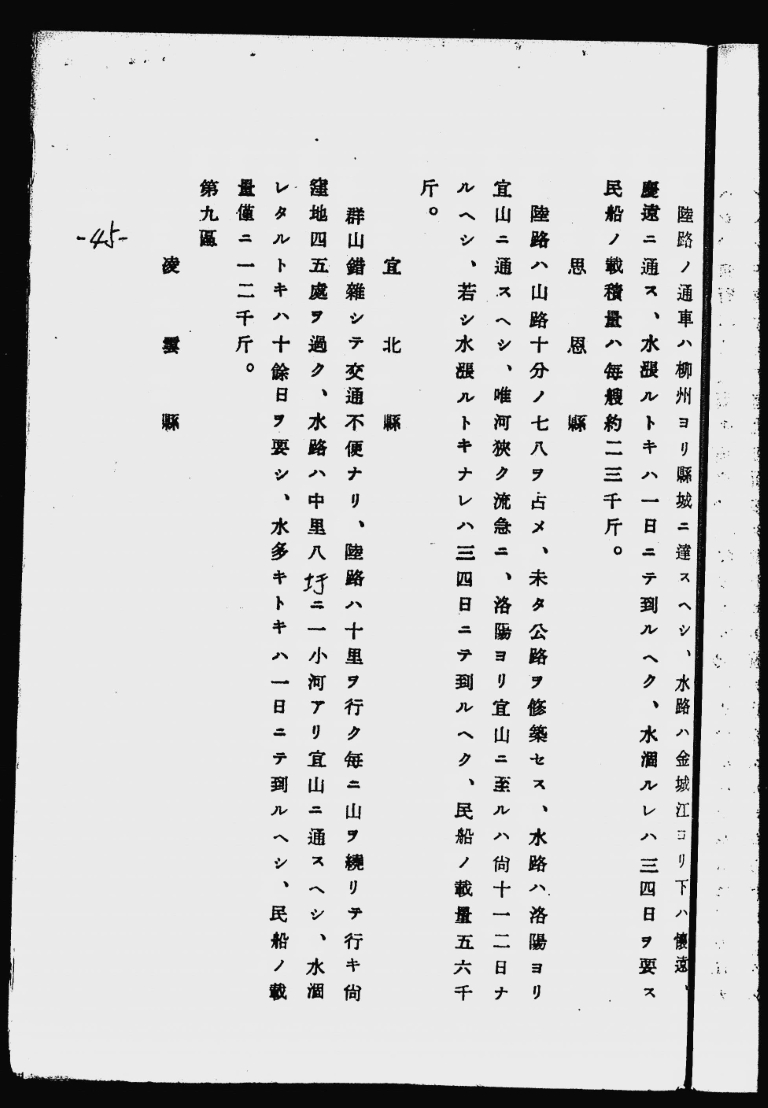 陸路ノ通車ハ柳州ヨリ縣城ニ達スヘシ、水路ハ金城江ヨリ下ハ懷遠、
慶遠ニ通ス、水漲ルトキハ一日ニテ到ルヘク、水涸ルレハ三四日ヲ要ス
民船ノ載積量ハ每艘約二三千斤。
思恩縣
陸路ハ山路十分ノ七八ヲ占メ、未タ公路ヲ修築セス、水路ハ洛陽ヨリ
宜山ニ通スヘシ、唯河狹ク流急ニ、洛陽ヨリ宜山ニ至ルハ尙十一二日ナ
ルヘシ、若シ水漲ルトキナレハ三四日ニテ到ルヘク、民船ノ載量五六千
斤。
宜北縣
群山錯雜シテ交通不便ナリ、陸路ハ十里ヲ行ク每ニ山ヲ繞リテ行キ尙
窪地四五處ヲ過ク、水路ハ中里八圩ニ一小河アリ宜山ニ通スヘシ、水涸
レタルトキハ十餘日ヲ要シ、水多キトキハ一日ニテ到ルヘシ、民船ノ載
量僅ニ一二千斤。
第九區
凌雲縣
-45-